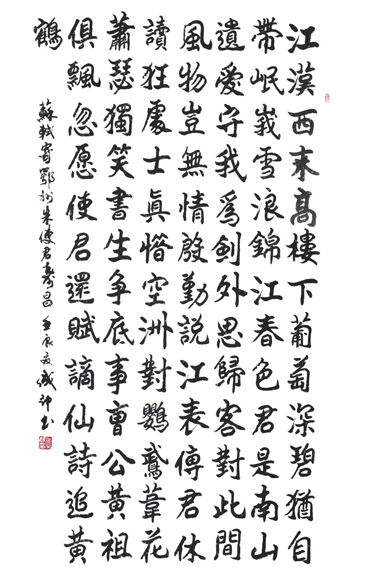 江漢西来高樓下葡萄深碧猶自
帶岷峩雪浪錦江春色君是南山
遺愛守我爲劍外思歸客對此間
風物豈無情殷勤説江表傳君休
讀狂處士真惜空洲對鸚鵡葦花
蕭瑟獨笑書生争底事曹公黄祖
俱飄忽愿使君還賦謫仙詩追黄
鶴
蘇軾寄鄂州朱使君壽昌 壬辰夏